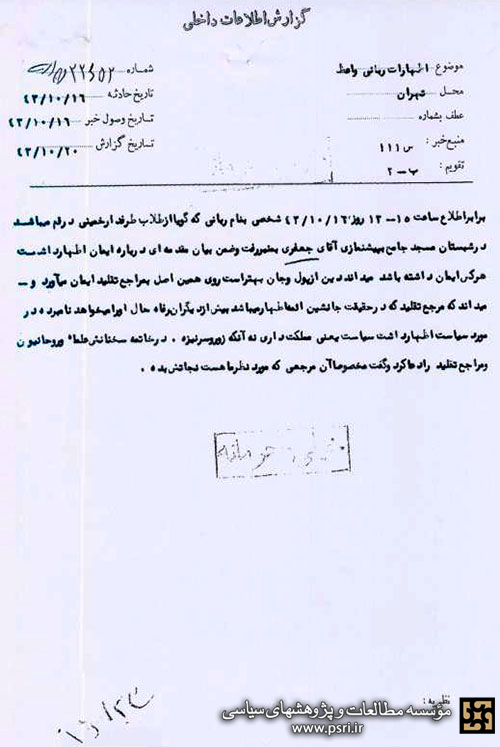 گزارش اطلاعات داخلی
موضوع اظهارات ربانی واعظ
شماره ۲۲۶۵۲
محل تهران
تاریخ حادثه ۴۳/۱۰/۱۶
عطف بشماره
تاریخ وصول خبر ۴۳/۱۰/۱۶
منبع خبر: س ۱۱۱
تاریخ گزارش ۴۳/۱۰/۲۰
تقویم: ب-۲
برابر اطلاع ساعت ۱۵-۱۲ روز ۴۳/۱۰/۱۶ شخصی بنام ربانی که گویا از طلاب طرفدار خمینی در قم میباشد
در شبستان مسجد جامع بپیشنمازی آقای جعفری بمنبر رفت و ضمن بیان مقدمه ای درباره ایمان اظهار داشت
هرکس ایمان داشته باشد میداند دین از پول و جان بهتر است روی همین اصل بمراجع تقلید ایمان میآورد و -
میداند که مرجع تقلید که در حقیقت جانشین ائمه اطهار میباشد بیش از دیگران رفاه حال او را میخواهد نامبرده در
مورد سیاست اظهار داشت سیاست یعنی مملکت داری نه آنکه زور و سرنیزه . در خاتمه سخنانش علماء و روحانیون
و مراجع تقلید را دعا کرد و گفت مخصوصا آن مرجعی که مورد نظر ما هست نجاتش بده .
خیلی محرمانه
نظریه:
مؤسسه مطالعات و پژوهشهای سیاسی
www.psri.ir